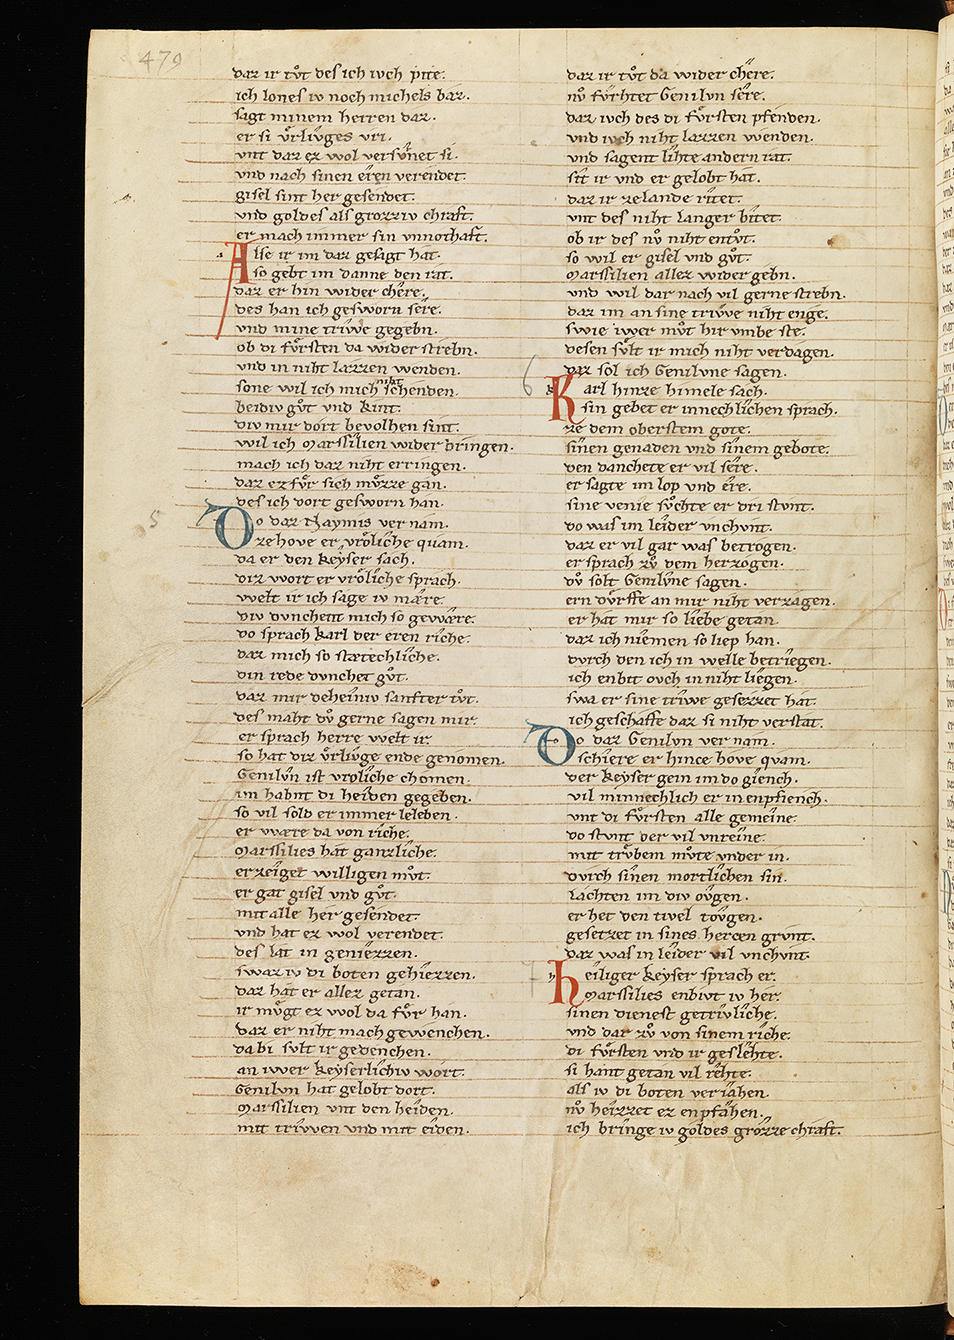 479
daz ir tuͦt des ich iuch pite.
ich lones iv noch michels baz.
sagt minem herren daz.
er si uͦrliuges vri.
vnt daz ez wol versuͦnet si.
vnd nach sinen eren verendet.
gisel sint her gesendet.
vnd goldes als grozziv chraft.
er mach immer sin vnnothaft.
Alse ir im daz gesagt hat.
so gebt im danne den rat.
daz er hin wider chere.
des han ich gesworn sere.
vnd mine triwe gegebn.
ob di fuͤrsten da wider strebn.
vnd in niht lazzen wenden.
sone wil ich mich niht schenden.
beidiv guͦt vnd kint.
div mir dort bevolhen sint.
wil ich Marssilien wider bringen.
mach ich daz niht erringen.
daz ez fuͤr sich muͤzze gan.
des ich dort gesworn han.
5
Do daz Naymis ver nam.
ze hove er vroͤliche quam.
da er den keyser sach.
diz wort er vroͤliche sprach.
welt ir ich sage iv mære.
div dunchent mich so gewære.
do sprach karl der eren riche.
daz mich so stætechliche.
din rede dvnchet guͦt.
daz mir deheiniv sanfter tuͦt.
des maht dv gerne sagen mir.
er sprach herre welt ir.
so hat diz uͦrliuge ende genomen.
Genilvn ist vroliche chomen.
im habnt di heiden gegeben.
so vil sold er immer leleben.
er wære da von riche.
Marssilies hat ganzliche.
erzeiget willigen muͦt.
er gat gisel vnd guͦt.
mit alle her gesendet.
vnd hat ez wol verendet.
des lat in geniezzen.
swaz iv di boten gehiezzen.
daz hat er allez getan.
ir muͤgt ez wol da fuͤr han.
daz er niht mach gewenchen.
da bi svlt ir gedenchen.
an iwer keyserlichiv wort.
Genilvn hat gelobt dort.
Marssilien vnt den heiden.
mit triwen vnd mit eiden.
daz ir tuͦt da wider chere.
nv fuͤrhtet Genilvn sere.
daz ivch des di fuͤrsten pfenden.
vnd ivch niht lazzen wenden.
vnd sagent lihte andern rat.
sit ir vnd er gelobt hat.
daz ir ze lande ritet.
vnt des niht langer bitet.
ob ir des nv niht entuͦt.
so wil er gisel vnd guͦt.
Marssilien allez wider gebn.
vnd wil dar nach vil gerne strebn.
daz im an sine triwe niht enge.
swie iwer muͦt hir vmbe ste.
desen svlt ir mich niht verdagen.
daz sol ich Genilvne sagen.
6
Karl hinze himele sach.
sin gebet er innechlichen sprach.
ze dem oberstem gote.
sinen genaden vnd sinem gebote.
den danchete er vil sere.
er sagte im lop vnd ere.
sine venie suͦchte er dri stvnt.
do was im leider vnchvnt.
daz er vil gar was betrogen.
er sprach zv dem herzogen.
dv solt Genilvne sagen.
ern duͤrffe an mir niht verzagen.
er hat mir so liebe getan.
daz ich niemen so liep han.
dvrch den ich in welle betriegen.
ich enbit ovch in niht liegen.
swa er sine triwe gesezzet hat.
ich geschaffe daz si niht verstat.
Do daz Genilvn ver nam.
schiere er hince hove quam.
der keyser gein im do giench.
vil minnechlich er in enpfiench.
vnt di fuͤrsten alle gemeine.
do stvnt der vil vnreine.
mit truͦbem muͦte vnder in.
dvrch sinen mortlichen sin.
lachten im div ovgen.
er het den tivel tovgen.
gesetzet in sines hercen grvnt.
daz was in leider vil vnchvnt.
7
Heiliger keyser sprach er.
Marssilies enbivt iv her.
sinen dienest getrivliche.
vnd dar zv von sinem riche.
di fuͤrsten vnd ir geslehte.
si hant getan vil rehte.
als iv di boten veriahen.
nv heizzet ez enpfahen.
ich bringe iv goldes grozze chraft.